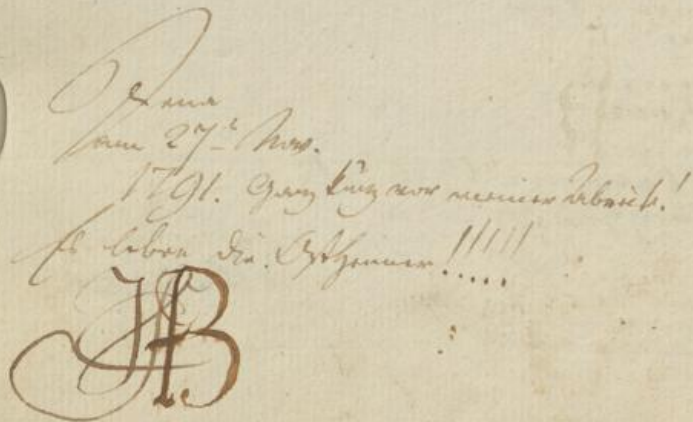 Jena
am 27t Nov.
1791. Ganz kurz vor meiner Abreise!
Es leben die Ostheimer!!!!!